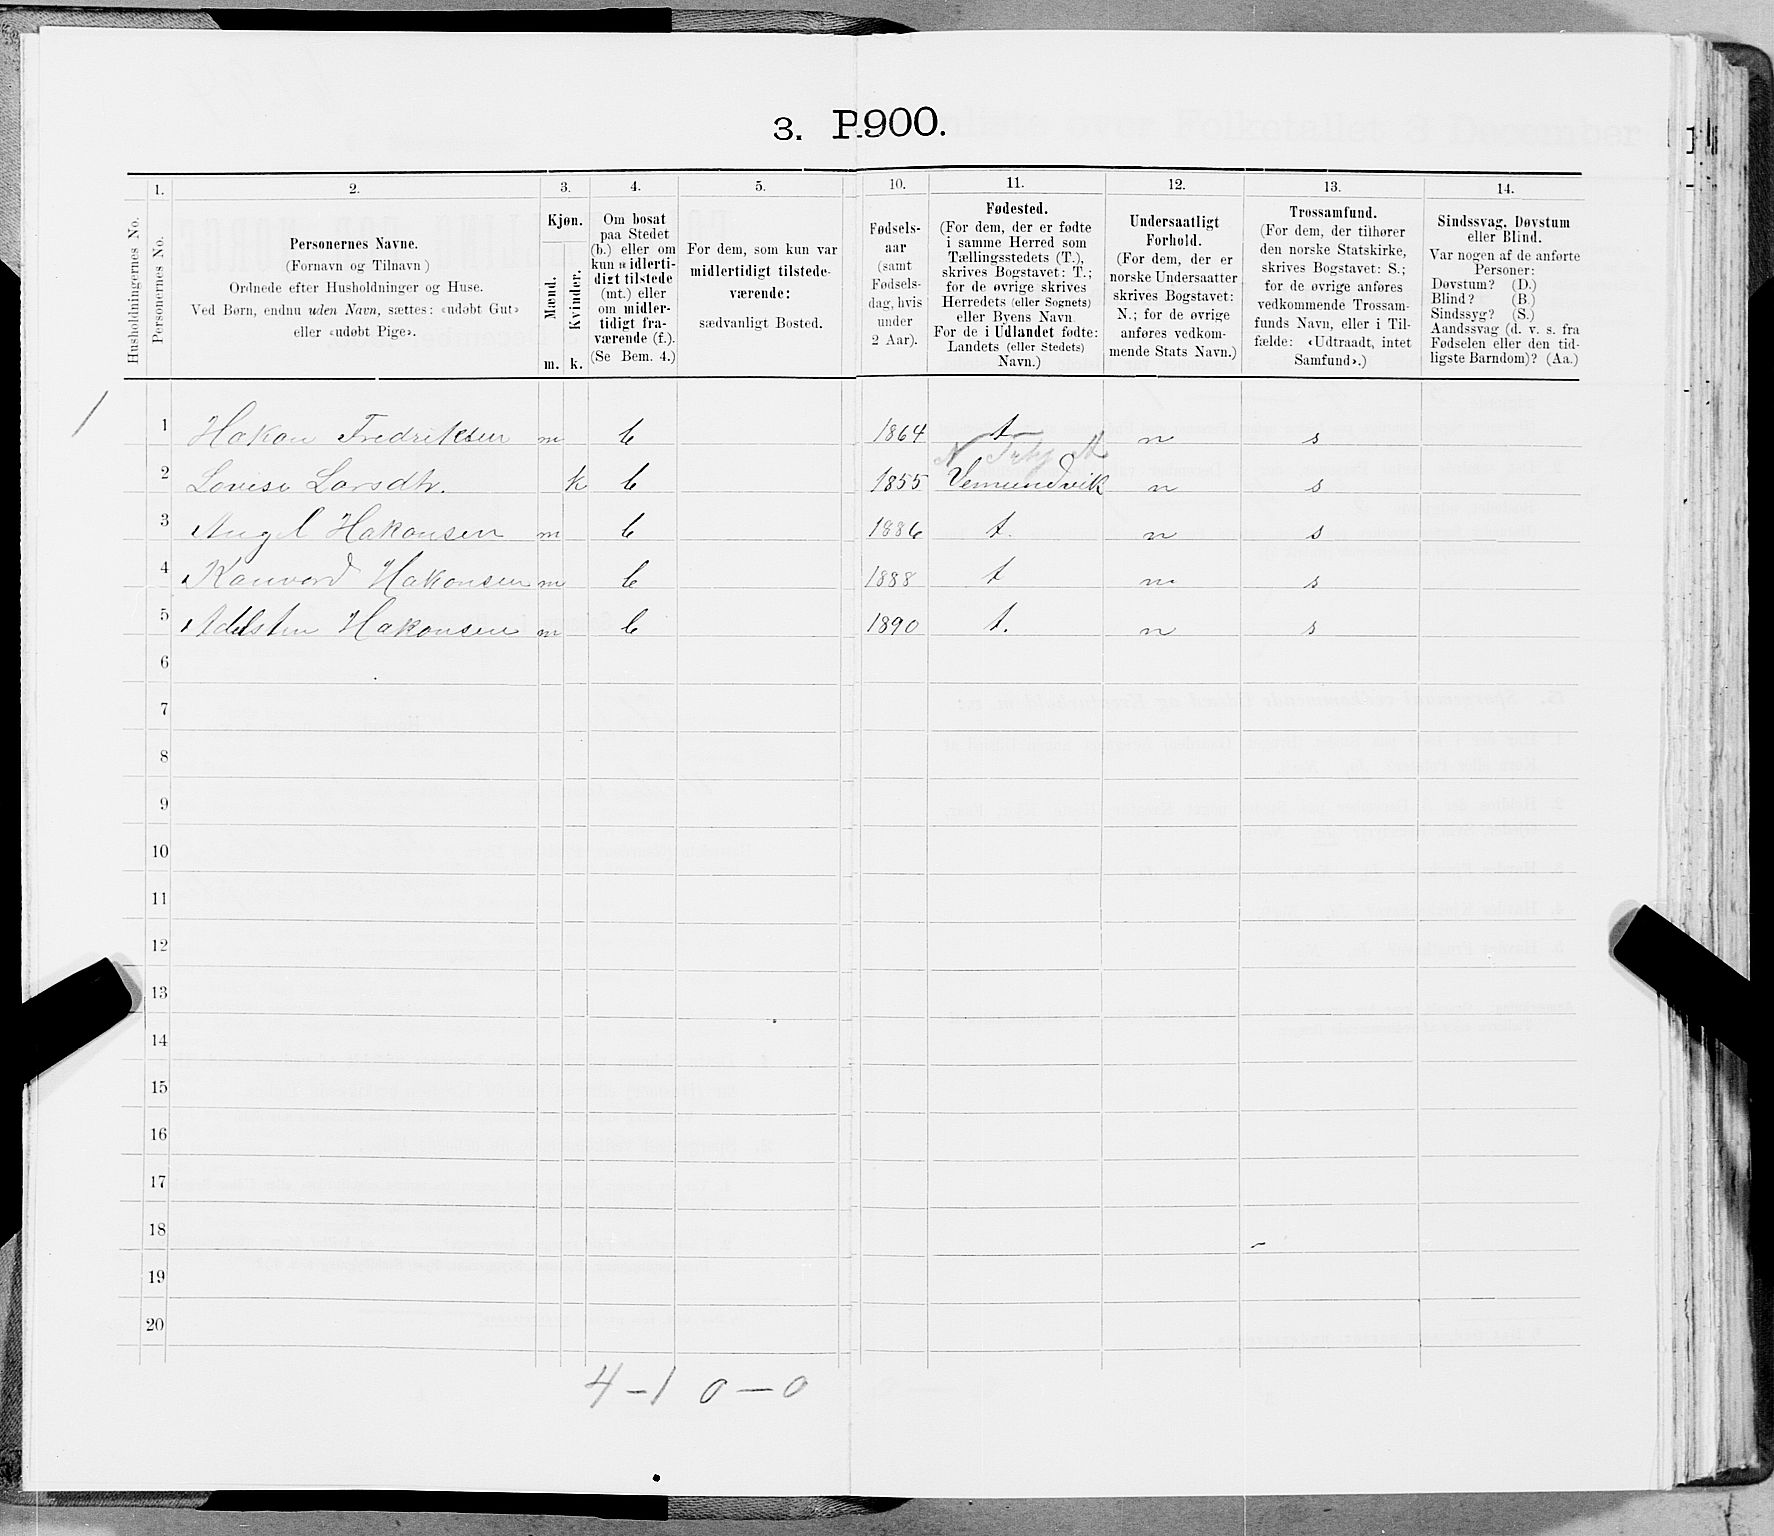 3. P.900.
1. 2. 3. 4. 5. 10. 11. 12. 13. 14.
Husholdningernes No.
Personernes No.
Personernes Navne.
(Fornavn og Tilnavn)
Ordnede efter Husholdninger og Huse.
Ved Børn, endnu uden Navn, sættes: «udøbt Gut»
eller «udøbt Pige».
Kjøn.
Mænd.
Kvinder.
m. k.
Om bosat
paa Stedet
(b.) eller om
kun midlerti-
digt tilstede
(mt.) eller
om midler-
tidigt fra-
værende (f.).
(Se Bem. 4.)
For dem, som kun var
midlertidigt tilstede-
værende:
sædvanligt Bosted.
Fødsels-
aar
(samt
Fødsels-
dag, hvis
under
2 Aar).
Fødested.
(For dem, der er fødte
i samme Herred som
Tællingsstedets (T.),
skrives Bogstavet: T.;
for de øvrige skrives
Herredets (eller Sognets)
eller Byens Navn.
For de i Udlandet fødte:
Landets (eller Stedets)
Navn.)
Undersaatligt
Forhold.
(For dem, der er
norske Undersaatter
skrives Bogstavet:
N.; for de øvrige
anføres vedkom-
mende Stats Navn.)
Trossamfund.
(For dem, der tilhører
den norske Statskirke,
skrives Bogstavet: S.;
for de øvrige anføres
vedkommende Trossam-
funds Navn, eller i Til-
fælde: «Udtraadt, intet
Samfund».)
Sindssvag, Døvstum
eller Blind.
Var nogen af de anførte
Personer:
Døvstum? (D.)
Blind? (B.)
Sindssyg? (S.)
Aandssvag (d. v. s. fra
Fødselen eller den tid-
ligste Barndom)? (Aa.)
1 1 Hakon Fredriksen m b 1864 t n s
N. Trhj. A
2 Lovise Larsdtr. k b 1855 Vemundvik n s
3 Angel Hakonsen m b 1886 t. n s
4 Kanvard Hakonsen m b 1888 t n s
5 Adelsten Hakonsen m b 1890 t. n s
6
7
8
9
10
11
12
13
14
15
16
17
18
19
20
4 - 1 0 - 0